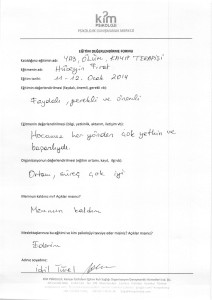 kim
PSİKOLOJİ
PSİKOLOJİK DANIŞMANLIK MERKEZİ
EĞİTİM DEĞERLENDİRME FORMU
Katıldığınız eğitimin adı: YAS, ÖLÜM, KAYIP TERAPİSİ
Eğitmenin adı: Hüseyin Fırat
Eğitim tarihi: 11-12 Ocak 2014
Eğitimin değerlendirilmesi (faydalı, önemli, gerekli vs)
Faydalı, gerekli ve önemli
Eğitmenin değerlendirilmesi (bilgi, yetkinlik, aktarım, iletişim vb):
Hocamız her yönden çok yetkin ve
başarılıydı.
Organizasyonun değerlendirilmesi (eğitim ortamı, kayıt, ilgi vb):
Ortam, süreç çok iyi
Memnun kaldınız mı? Açıklar mısınız?
Memnun kaldım
Meslektaşlarınıza bu eğitimi ve kim psikolojiyi tavsiye eder misiniz? Açıklar mısınız?
Ederim
Adınız soyadınız: